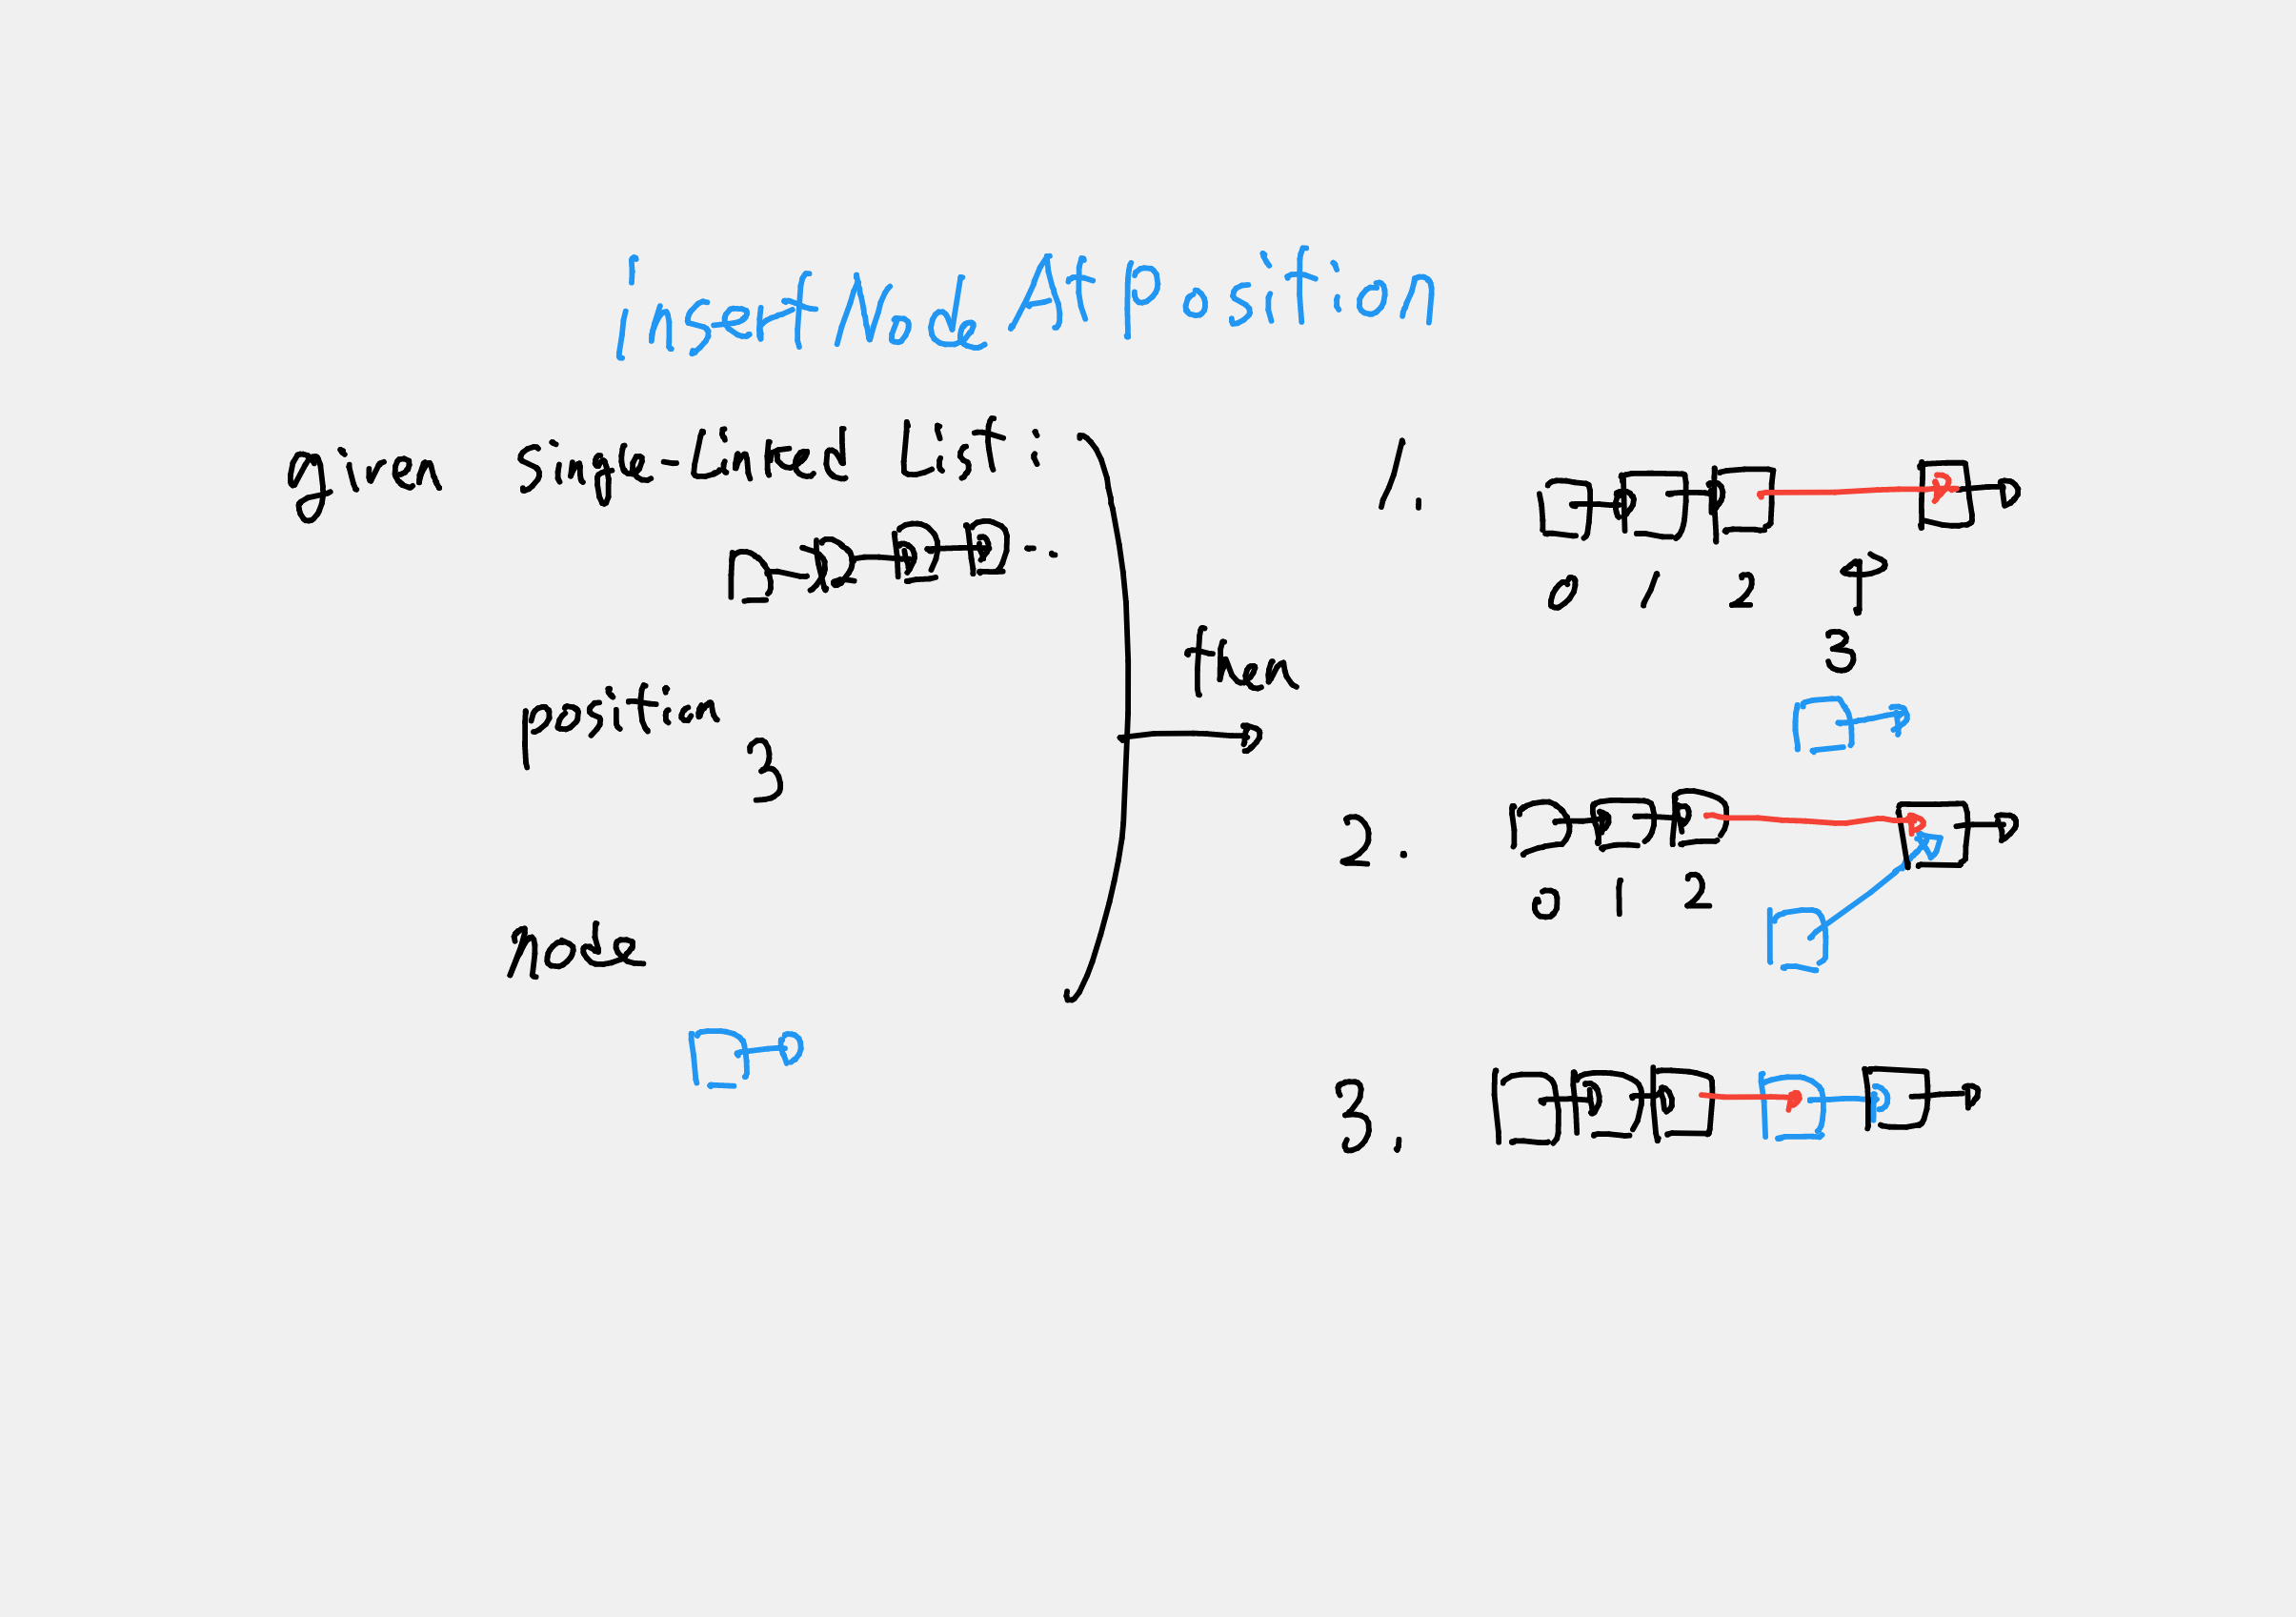 insertNodeAtPosition
given single-Linked List:
position
3
node
then
1.
0 1 2
3
2.
0 1 2
3.